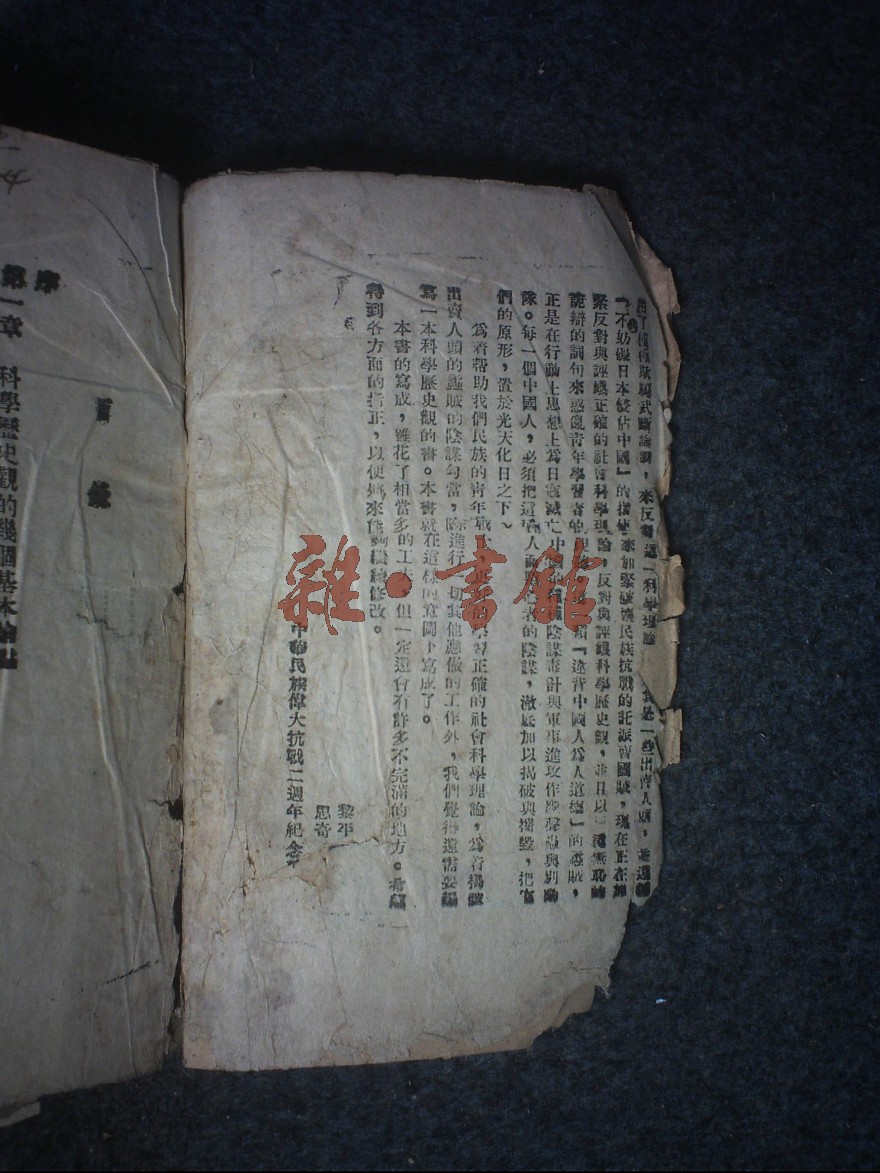 來反對這一科學理論
是一些出賣人頭,
「不妨礙日本侵佔中國」的
來加緊破壞民族抗戰的託派賣國賊,現在正在加
緊反對與誣衊正確的社會科學理論,反對與誣衊科學歷史觀,並且以
詭辯的詞句來惑亂青年學習者的
「違背中國人爲人道德」的惡賊,
正是在行動上思想上爲日寇滅亡中國的
陰謀毒計與軍事進攻作
與別動
隊。每一個中國人,必須把這
人面
者的陰謀,澈底加以揭破與摧毀,把它
們的原形,置於光天化日之下
爲着幫助我們民族的青年戰士,
學習正確的社會科學理論,爲着揭破
出賣人頭的蟊賊的陰謀勾當,除進行一切其他應做的工作外,我們覺得還需要編
寫一本科學歷史觀的書。本書就在這樣的意圖下寫成了。
本書的寫成,雖花了相當多的工夫,但一定還會有許多不完滿的地方。希望
得到各方面的指正,以便將來能夠繼續修改。
中華民族偉大抗戰二週年紀念
黎平
思奇
序
第一章 科學歷史觀的幾個基本論點
雜·書館